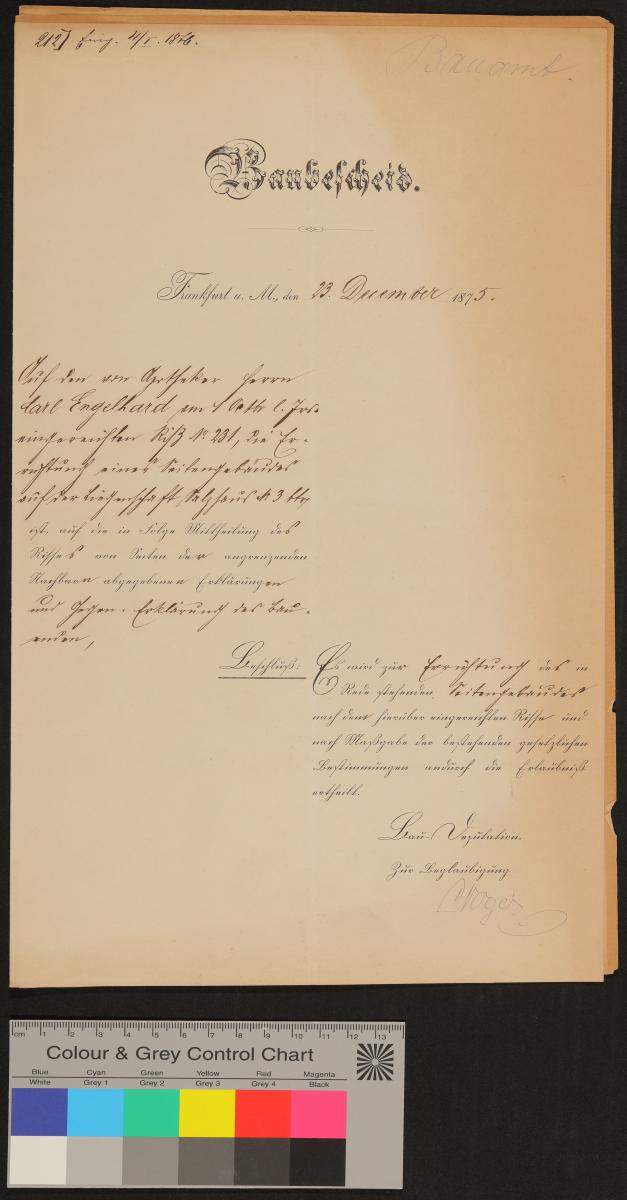 212] Eing. 4/I. 1876.
Bauamt.
Baubescheid.
Frankfurt a. M., den 23. December 1875.
Auf den von Apotheker Herrn
Carl Engelhard am 1 Octbr l. Jrs.
eingereichten Riß No. 231, die Er-
richtung eines Seitengebäudes
auf der Liegenschaft Salzhaus No. 3 btr.
ist, auf die in Folge Mittheilung des
Risses von Seiten der angrenzenden
Nachbarn abgegebenen Erklärungen
und Gegen-Erklärung des Bau-
enden,
Beschluß:
Es wird zur Errichtung des in
Rede stehenden Seitengebäudes
nach dem hierüber eingereichten Risse und
nach Maßgabe der bestehenden gesetzlichen
Bestimmungen andurch die Erlaubniß
ertheilt.
Bau-Deputation.
Zur Beglaubigung
cm 1 2 3 4 5 6 7 8 9 10 11 12 13
Colour & Grey Control Chart
Blue Cyan Green Yellow Red Magenta
White Grey 1 Grey 2 Grey 3 Grey 4 Black